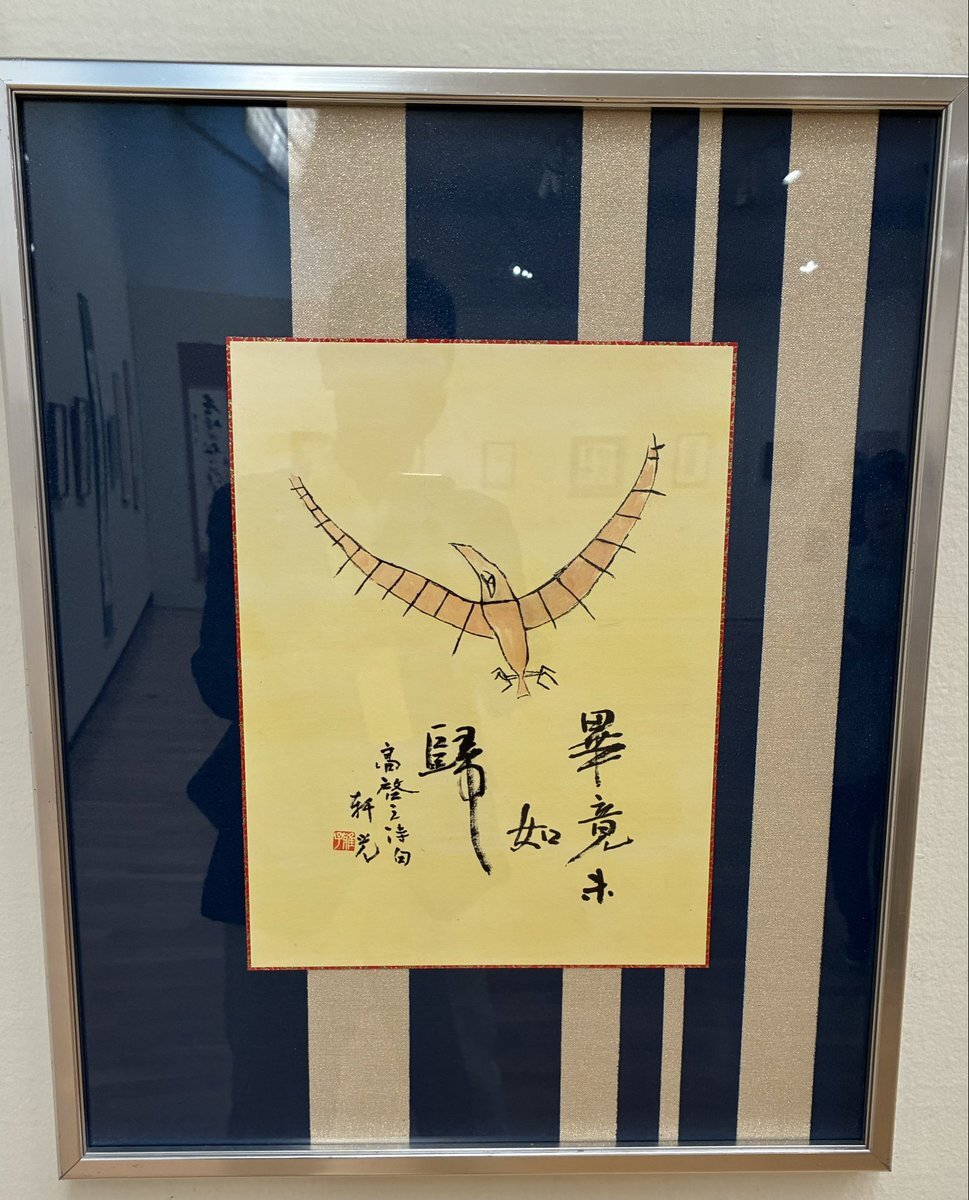 畢竟未
如
歸
高啓之詩句
軒光